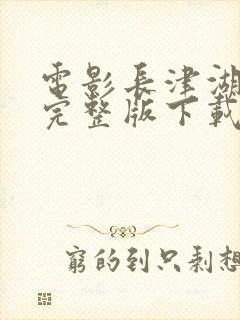 電影長津湖
完整版下載
窮的到只剩想